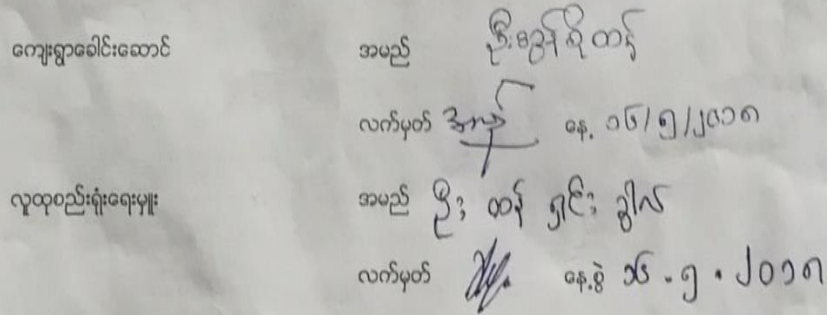 ကျေးရွာခေါင်းဆောင် အမည် ဦးစွန်ရိုထန်
လက်မှတ် နေ့ ၁၆/၅/၂၀၁၈
လူထုစည်းရုံးရေးမှူး အမည် ဦး ထန် ရှင်း ခွါလ်
လက်မှတ် နေ့စွဲ ၁၆.၅.၂၀၁၈